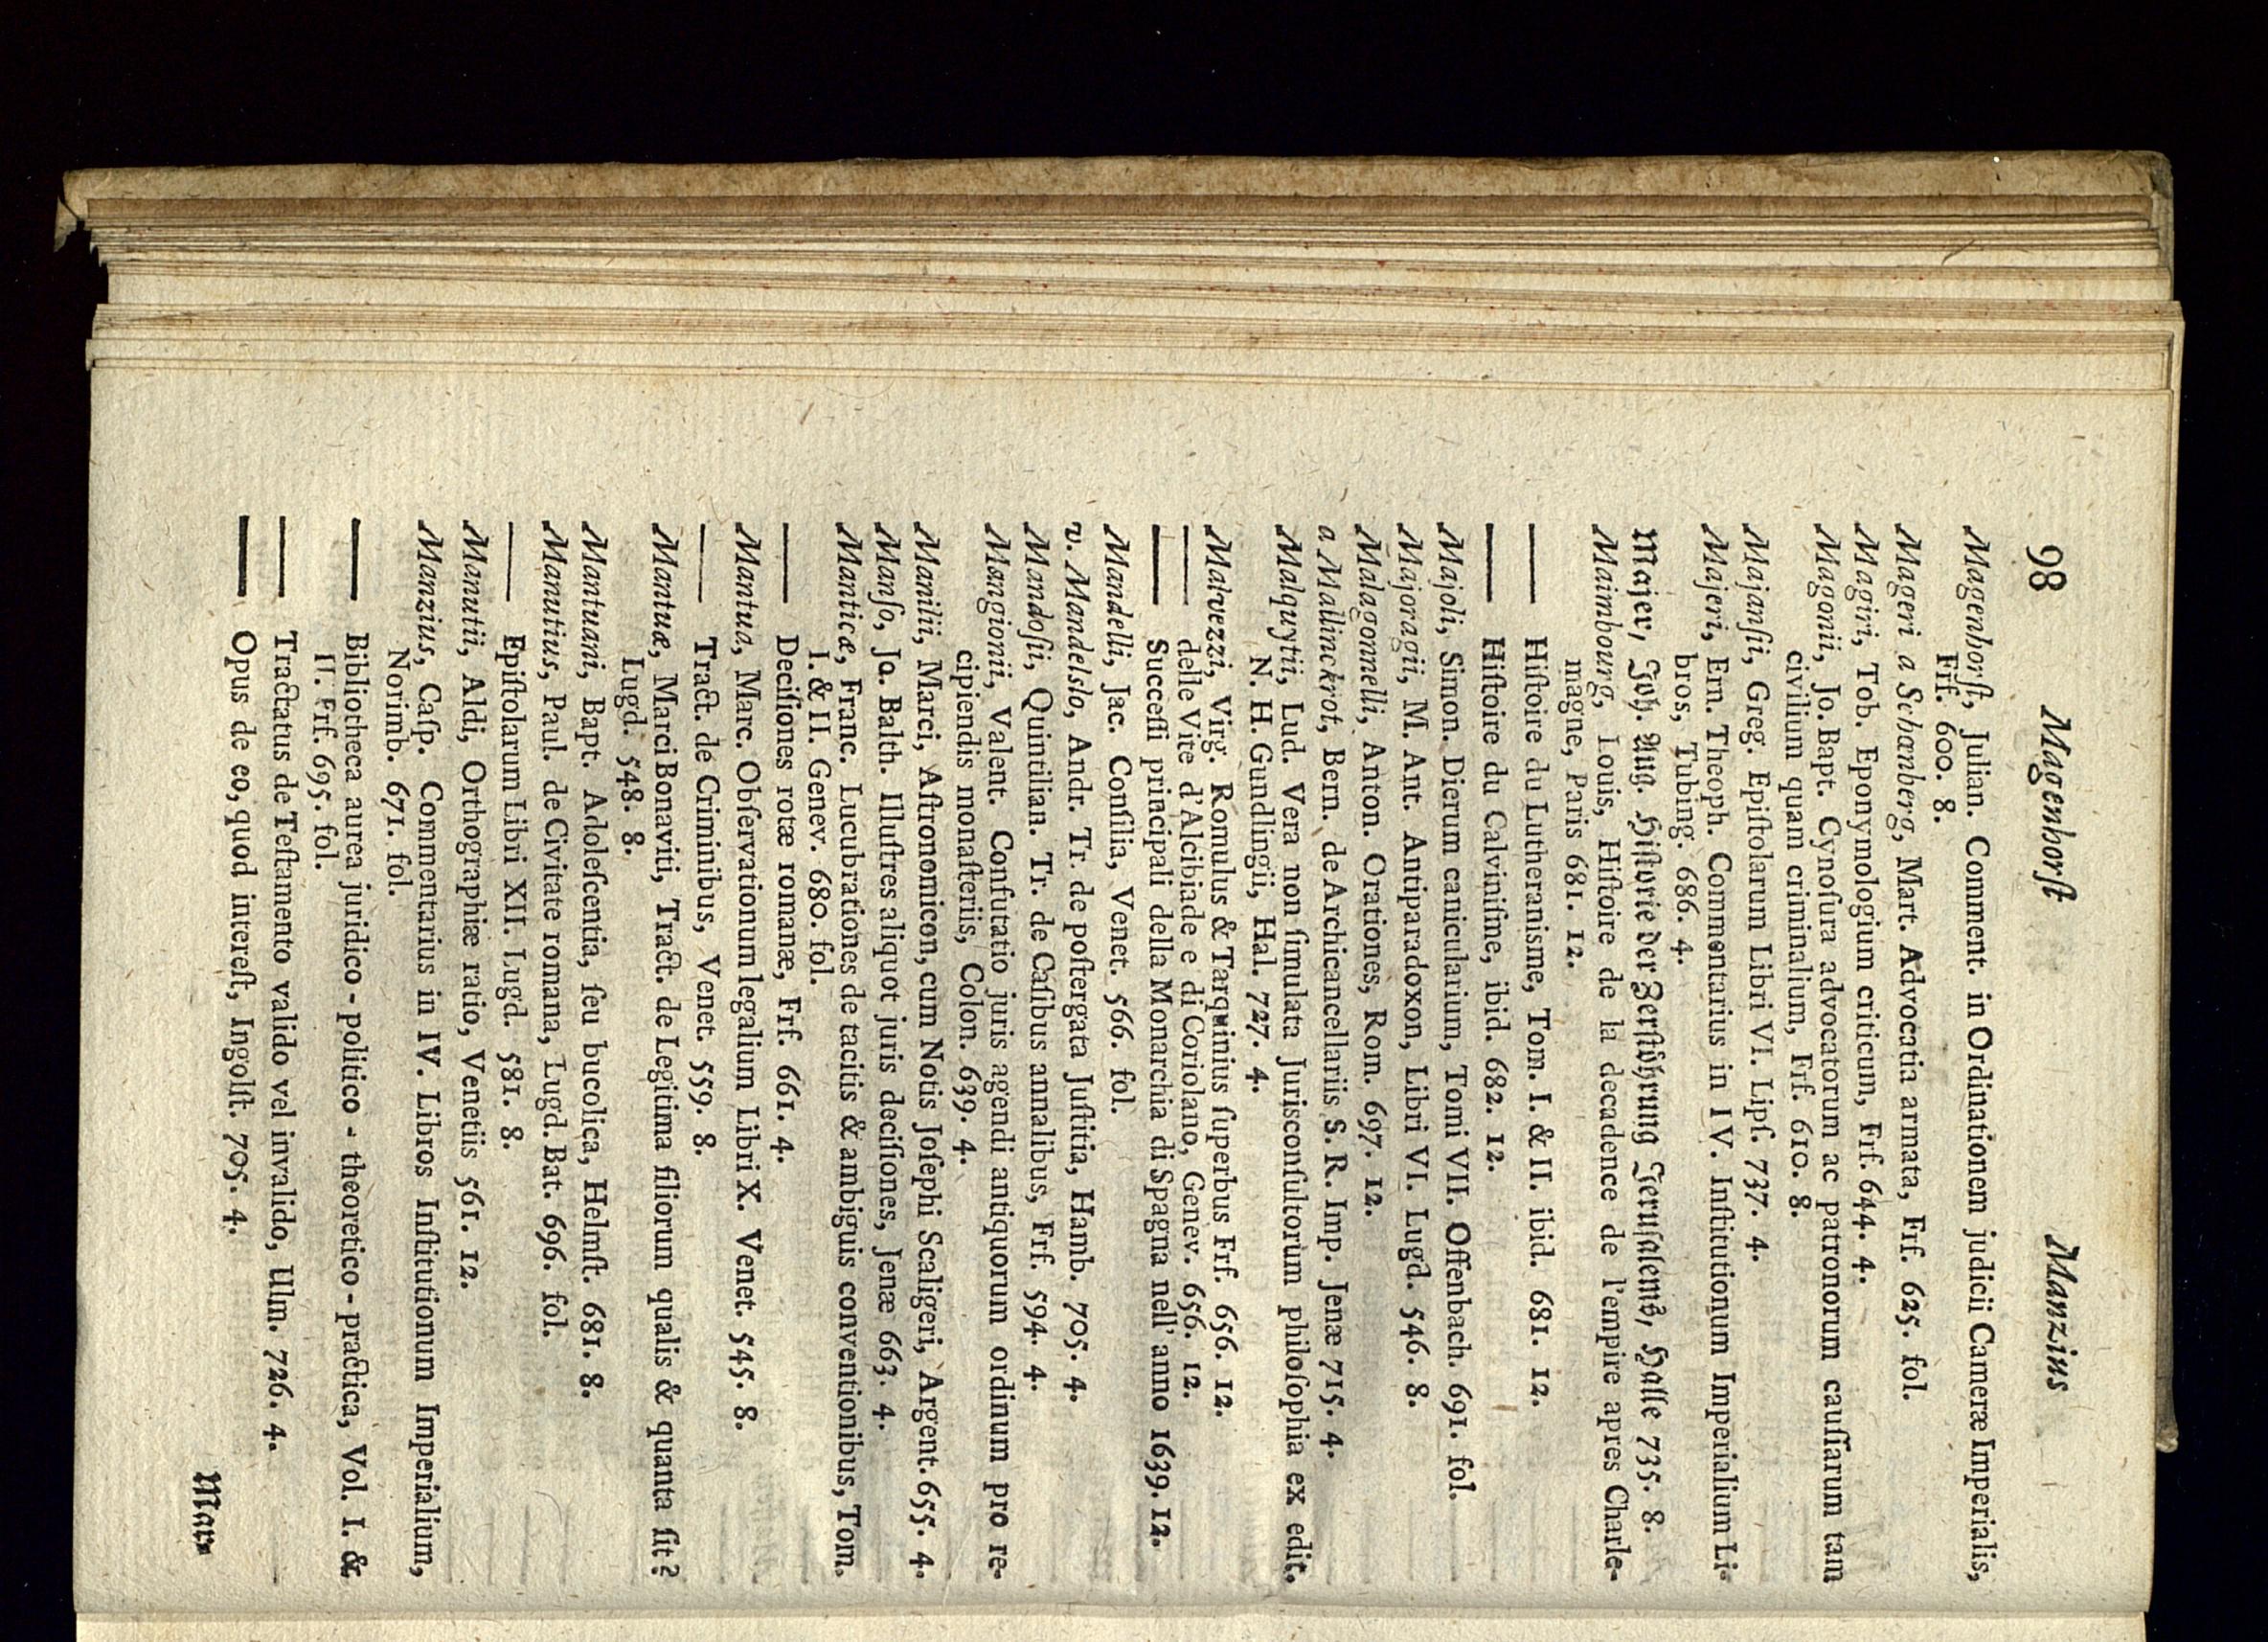 98 Magenhorſt Manzius
Magenhorſt, Julian. Comment. in Ordinationem judicii Cameræ Imperialis,
Frf. 600. 8.
Mageri a Schœnberg, Mart. Advocatia armata, Frf. 625. fol.
Magiri, Tob. Eponymologium criticum, Frf. 644. 4.
Magonii, Jo. Bapt. Cynoſura advocatorum ac patronorum cauſſarum tam
civilium quam criminalium, Frf. 610. 8.
Majanſii, Greg. Epiſtolarum Libri VI. Lipſ. 737. 4.
Majeri, Ern. Theoph. Commentarius in IV. Inſtitutionum Imperialium Li-
bros, Tubing. 686. 4.
Majer, Joh. Aug. Hiſtorie der Zerſtöhrung Jeruſalems, Halle 735. 8.
Maimbourg, Louis, Hiſtoire de la decadence de l'empire apres Charle-
magne, Paris 681. 12.
—— Hiſtoire du Lutheranisme, Tom. I. & II. ibid. 681. 12.
—— Hiſtoire du Calviniſme, ibid. 682. 12.
Majoli, Simon. Dierum canicularium, Tomi VII. Offenbach. 691. fol.
Majoragii, M. Ant. Antiparadoxon, Libri VI. Lugd. 546. 8.
Malagonnelli, Anton. Orationes, Rom. 697. 12.
a Mallinckrot, Bern. de Archicancellariis S. R. Imp. Jenæ 715. 4.
Malquytii, Lud. Vera non ſimulata Jurisconſultorum philoſophia ex edit.
N. H. Gundlingii, Hal. 727. 4.
Malvezzi, Virg. Romulus & Tarquinius ſuperbus Frf. 656. 12.
—— delle Vite d'Alcibiade e di Coriolano, Genev. 656. 12.
—— Succeſſi principali della Monarchia di Spagna nell' anno 1639. 12.
Mandelli, Jac. Conſilia, Venet. 566. fol.
v. Mandelslo, Andr. Tr. de poſtergata Juſtitia, Hamb. 705. 4.
Mandoſii, Quintilian. Tr. de Caſibus annalibus, Frf. 594. 4.
Mangionii, Valent. Confutatio juris agendi antiquorum ordinum pro re-
cipiendis monaſteriis, Colon. 639. 4.
Manilii, Marci, Aſtronomicon, cum Notis Joſephi Scaligeri, Argent. 655. 4.
Manſo, Ja. Balth. Illuſtres aliquot juris deciſiones, Jenæ 663. 4.
Manticæ, Franc. Lucubrationes de tacitis & ambiguis conventionibus, Tom.
I. & II. Genev. 680. fol.
—— Deciſiones rotæ romanæ, Frf. 661. 4.
Mantua, Marc. Obſervationum legalium Libri X. Venet. 545. 8.
—— Tract. de Criminibus, Venet. 559. 8.
Mantuæ, Marci Bonaviti, Tract. de Legitima filiorum qualis & quanta ſit?
Lugd. 548. 8.
Mantuani, Bapt. Adoleſcentia, ſeu bucolica, Helmſt. 681. 8.
Manutius, Paul. de Civitate romana, Lugd. Bat. 696. fol.
—— Epiſtolarum Libri XII. Lugd. 581. 8.
Manutii, Aldi, Orthographiæ ratio, Venetiis 561. 12.
Manzius, Caſp. Commentarius in IV. Libros Inſtitutionum Imperialium,
Norimb. 671. fol.
—— Bibliotheca aurea juridico - politico - theoretico - practica, Vol. I. &
II. Frf. 695. fol.
—— Tractatus de Teſtamento valido vel invalido, Ulm. 726. 4.
—— Opus de eo, quod intereſt, Ingolſt. 705. 4.
Mar-